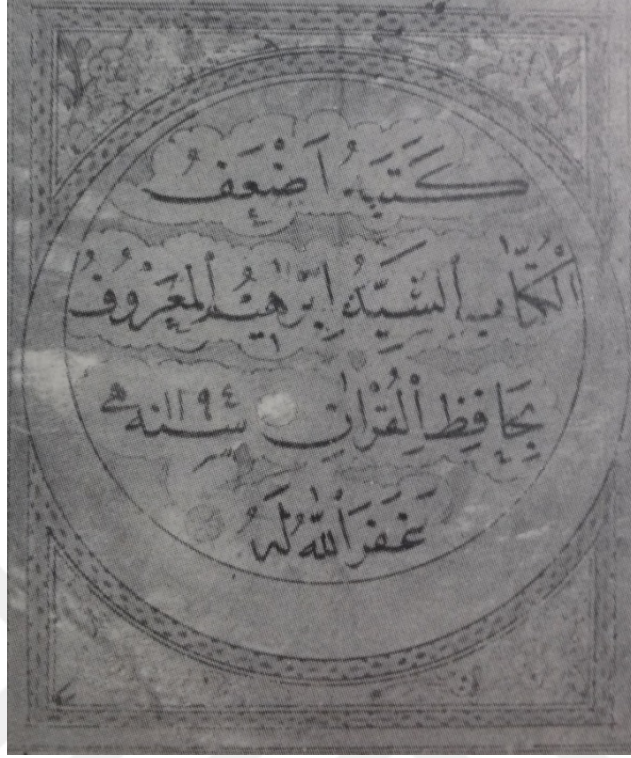 كَتَبَهُ اَضْعَفُ
الْكُتَّابِ السَّيِّدُ اِبْرٰهِيمُ الْمَعْرُوفُ
بِحَافِظِ الْقُرْاٰنِ سنه ١١٩٤ هـ
غَفَرَ اللّٰهُ لَهُ